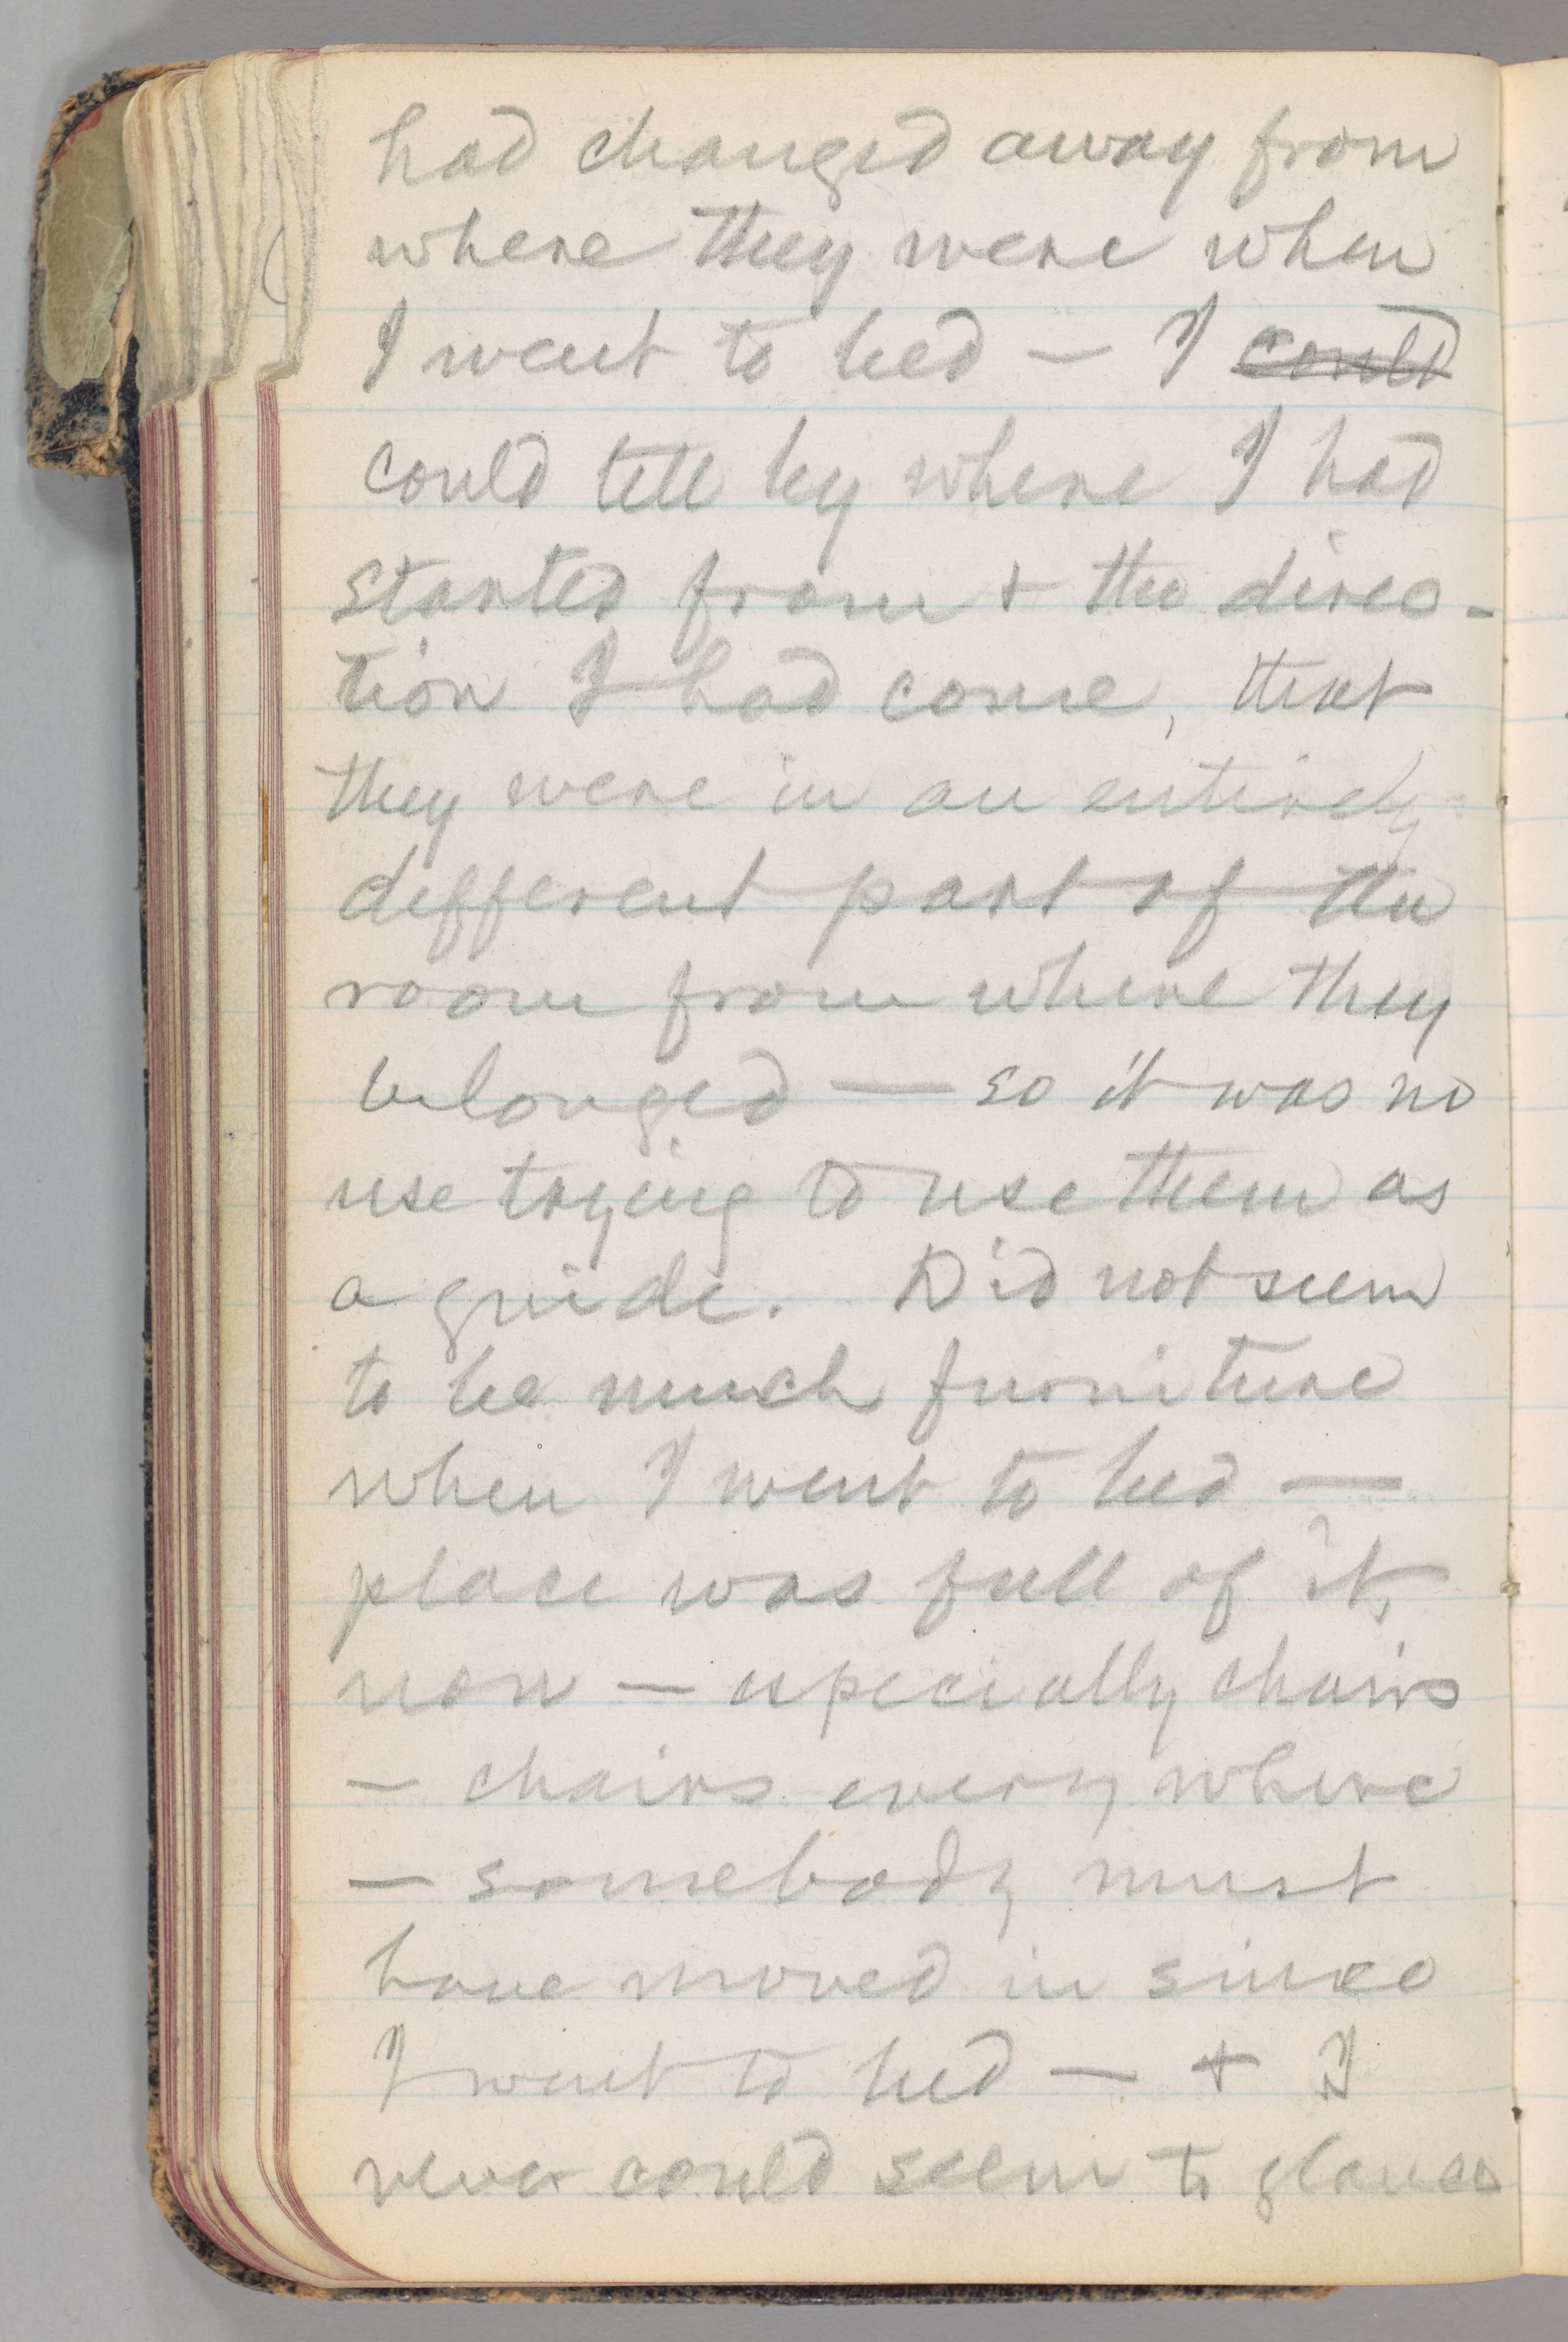 had changed away from
where they were when
I went to bed — I could
could tell by where I had
started from + the direc-
tion I had come, that
they were in an entirely
different part of the
room from where they
belonged — so it was no
use trying to use them as
a guide. Did not seem
to be much furniture
when I went to bed —
place was full of it,
now — especially chairs
— chairs every where
— somebody must
have moved in since
I went to bed — + I
never could seem to glance